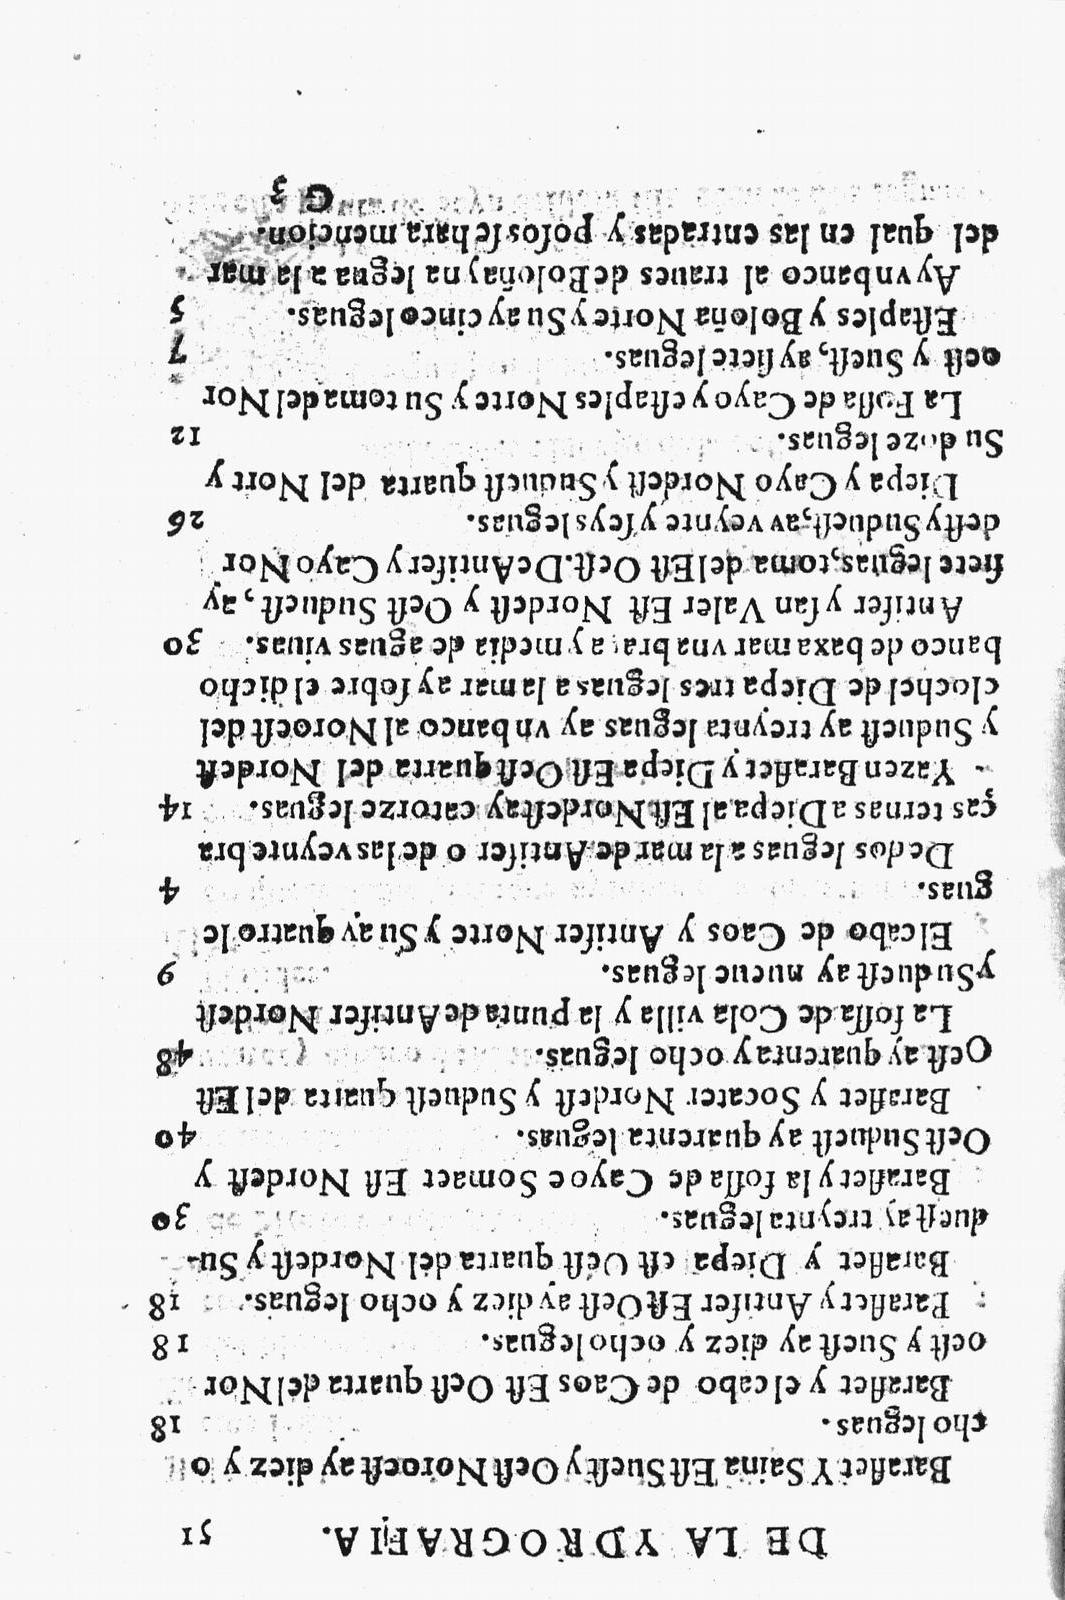 DE LA YDROGRAFIA. 51
Baraflet Y Saina Eſt Sueſt y Oeſt Noroeſt ay diez y o
cho leguas. 18
Baraflet y el cabo de Caos Eſt Oeſt quarta del Nor
oeſt y Sueſt ay diez y ocho leguas. 18
Paraflet y Antifer Eſt Oeſt ay diez y ocho leguas. 18
Baraflet y Diepa eſt Oeſt quarta del Nordeſt y Su-
dueſt ay treynta leguas. 30
Baraflet y la foſſa de Cayo e Somaet Eſt Nordeſt y
Oeſt Sudueſt ay quarenta leguas. 40
Baraflet y Socater Nordeſt y Sudueſt quarta del Eſt
Oeſt ay quarenta y ocho leguas. 48
La foſſa de Cola villa y la punta de Antifer Nordeſt
y Sudueſt ay nueue leguas. 9
El cabo de Caos y Antifer Norte y Su ay quatro le
guas. 4
De dos leguas a la mar de Antifer o de las veynte bra
ças ternas a Diepa al Eſt Nordeſt ay catorze leguas. 14
Yazen Baraflet y Diepa Eſt Oeſt quarta del Nordeſt
y Sudueſt ay treynta leguas ay vn banco al Noroeſt del
clochel de Diepa tres leguas a la mar ay ſobre el dicho
banco de baxa mar vna bra a y media de aguas viuas. 30
Antifer y ſan Valer Eſt Nordeſt y Oeſt Sudueſt, ay
ſiete leguas, toma del Eſt Oeſt. De Antifer y Cayo Nor
deſt y Sudueſt, ay veynte y ſeys leguas. 26
Diepa y Cayo Nordeſt y Sudueſt quarta del Nort y
Su doze leguas. 12
La Foſſa de Cayo y eſtaples Norte y Su toma del Nor
oeſt y Sueſt, ay ſiete leguas. 7
Eſtaples y Boloña Norte y Su ay cinco leguas. 5
Ay vn banco al traues de Boloña y na legua a la mar
del qual en las entradas y poſos ſe hara mencion.
G 3